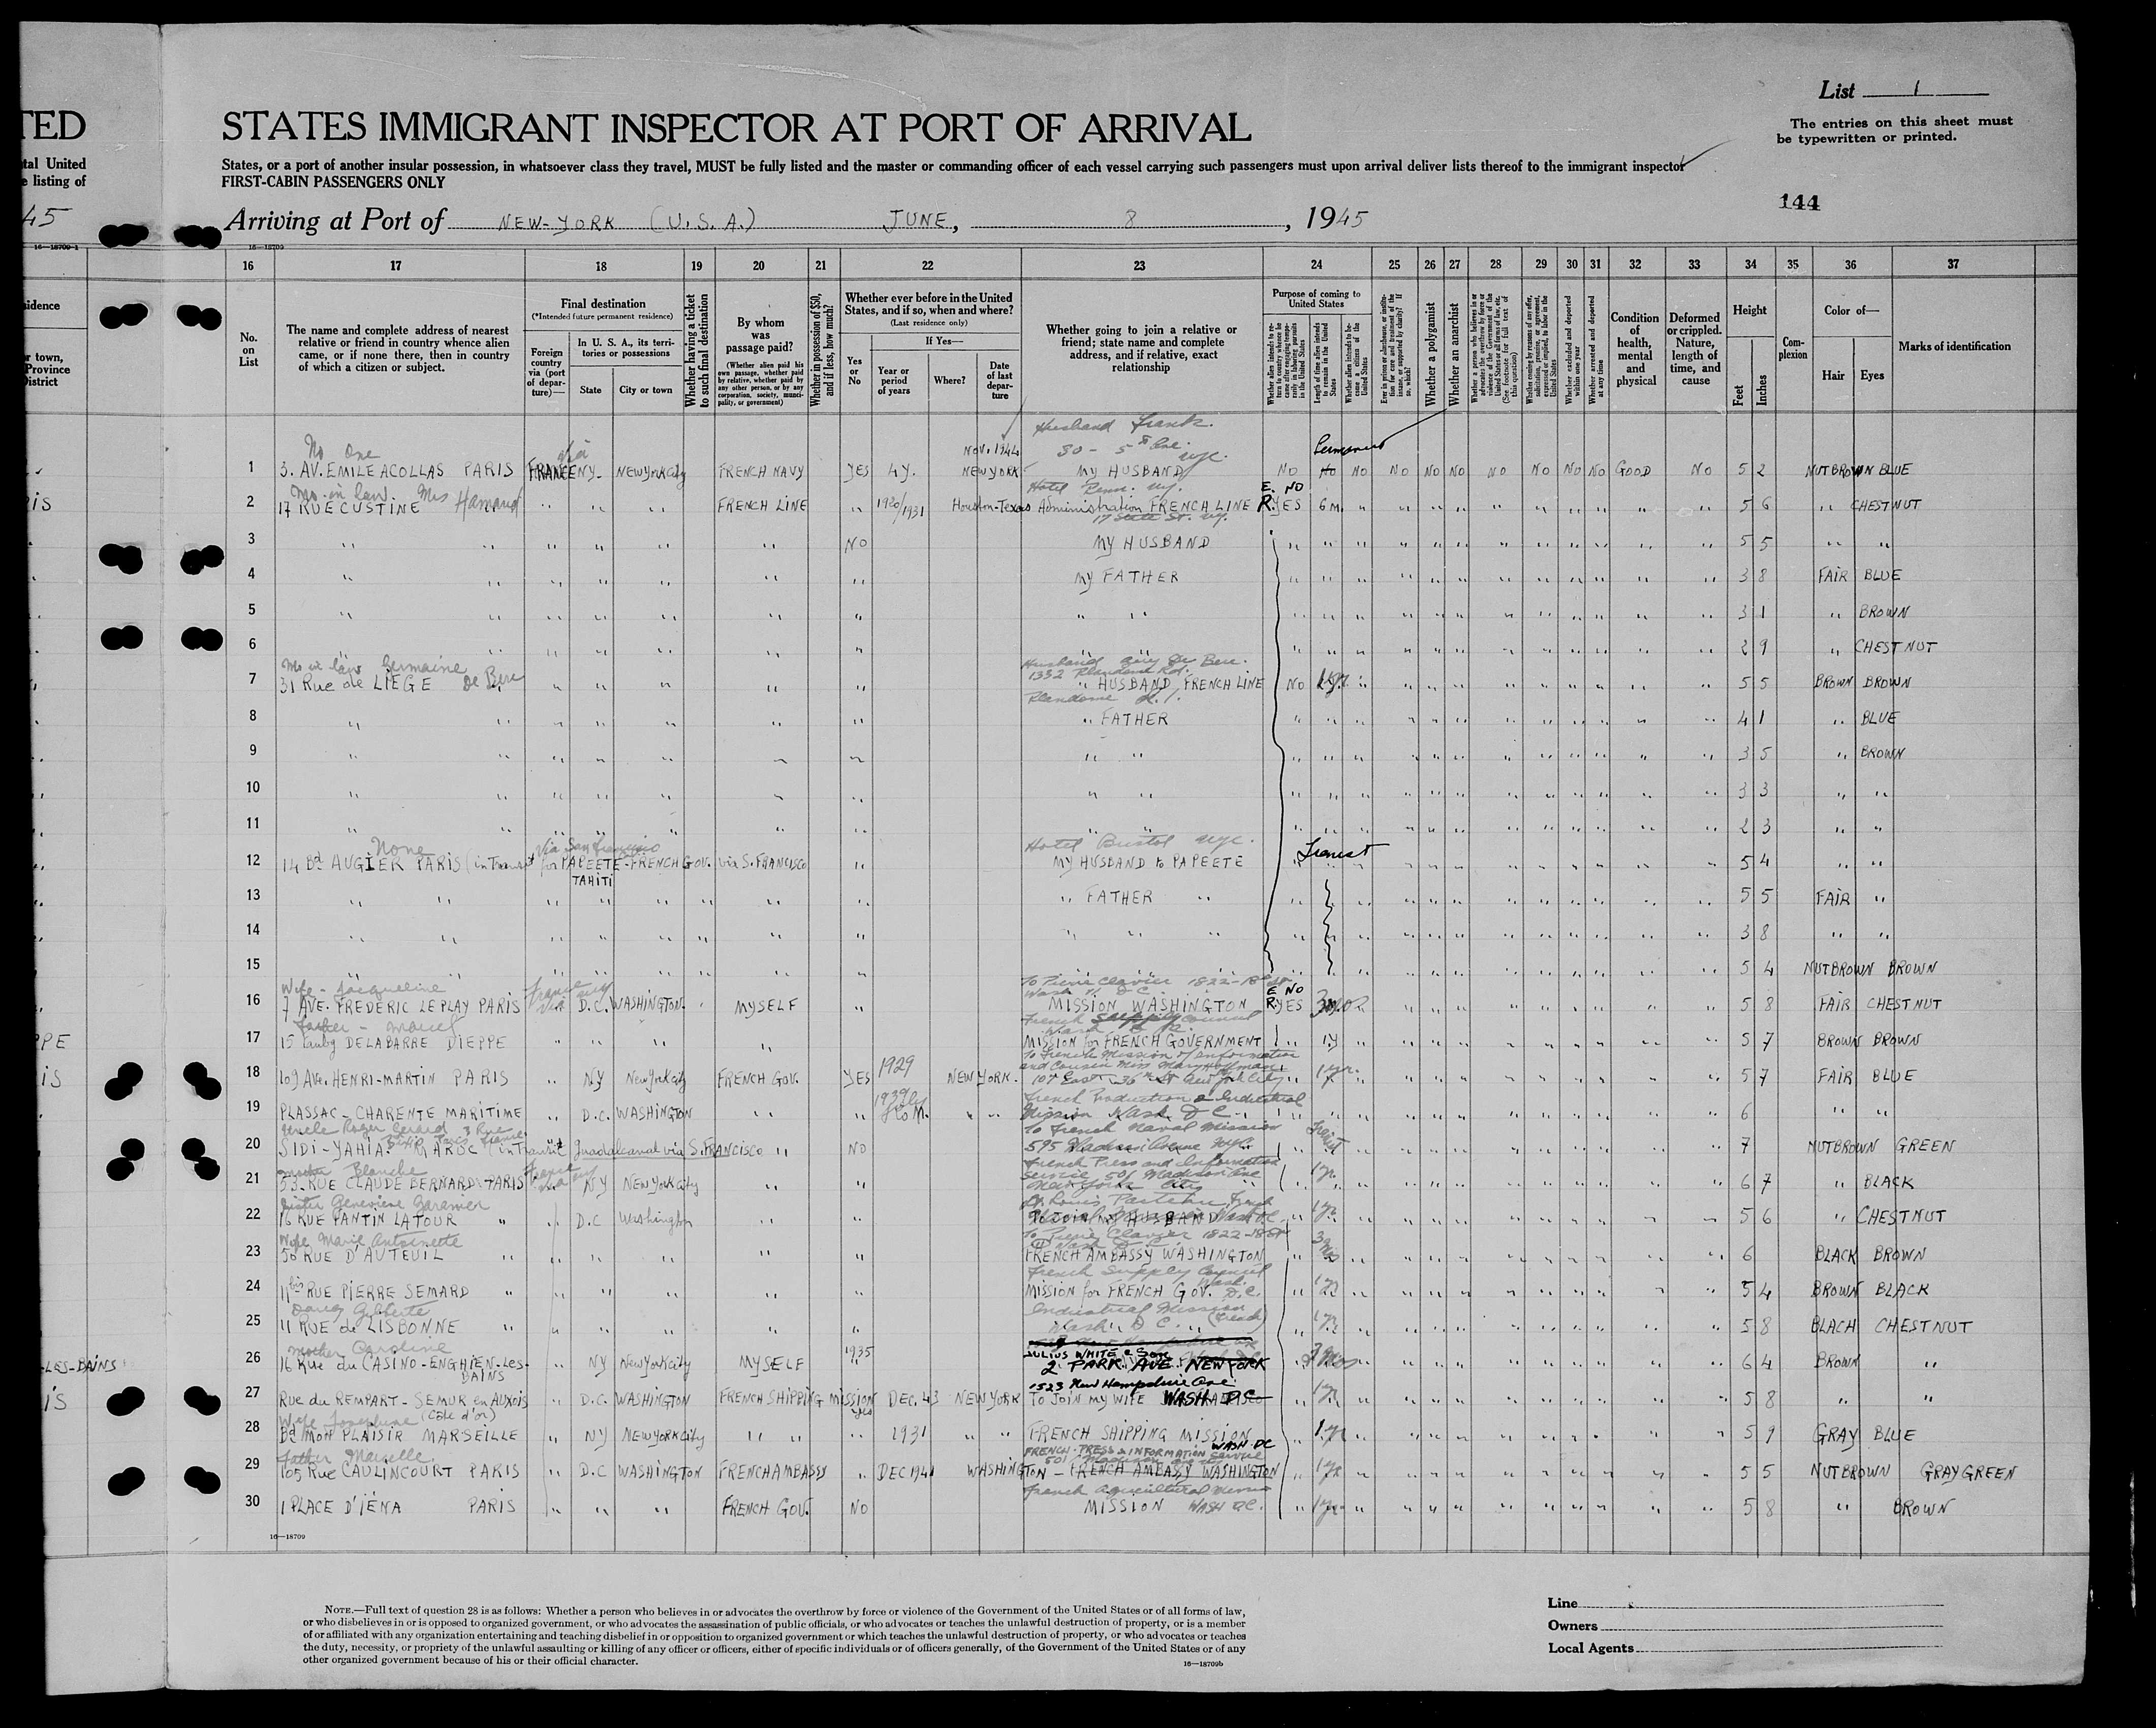 TED
STATES IMMIGRANT INSPECTOR AT PORT OF ARRIVAL
List 1
The entries on this sheet must
be typewritten or printed.
tal United
e listing of
States, or a port of another insular possession, in whatsoever class they travel, MUST be fully listed and the master or commanding officer of each vessel carrying such passengers must upon arrival deliver lists thereof to the immigrant inspector
FIRST-CABIN PASSENGERS ONLY
144
45
Arriving at Port of NEW-YORK (U.S.A.) JUNE, 8, 1945
16—18709-1
16—18709
16 17 18 19 20 21 22 23 24 25 26 27 28 29 30 31 32 33 34 35 36 37
idence
r town,
Province
District
No. on List
The name and complete address of nearest relative or friend in country whence alien came, or if none there, then in country of which a citizen or subject.
Final destination
(*Intended future permanent residence)
Foreign country via (port of departure)—
In U. S. A., its territories or possessions
State
City or town
Whether having a ticket to such final destination
By whom was passage paid?
(Whether alien paid his own passage, whether paid by relative, whether paid by any other person, or by any corporation, society, municipality, or government)
Whether in possession of $50, and if less, how much?
Whether ever before in the United States, and if so, when and where?
(Last residence only)
Yes or No
If Yes—
Year or period of years
Where?
Date of last departure
Whether going to join a relative or friend; state name and complete address, and if relative, exact relationship
Purpose of coming to United States
Length of time alien intends to remain in the United States
Whether alien intends to become a citizen of the United States
Whether a polygamist
Whether an anarchist
Whether excluded and deported within one year
Whether arrested and deported at any time
Condition of health, mental and physical
Deformed or crippled. Nature, length of time, and cause
Height
Feet
Inches
Complexion
Color of—
Hair
Eyes
Marks of identification
No One via Nov. 1944 Husband Frank 80 - 5th Ave. nyc. Permanent
1 3. AV. EMILE ACOLLAS PARIS FRANCE NY- NEW YORK City FRENCH NAVY YES 4y. NEW YORK MY HUSBAND NO NO NO NO NO NO NO NO NO NO GOOD NO 5 2 NUTBROWN BLUE
Mo-in law Mrs Hamaud Hotel Penn. ny. E. NO
2 17 RUE CUSTINE " " " FRENCH LINE " 1920/1931 Houston-Texas Administration FRENCH LINE R. YES 6 m. " " " " " " " " " " 5 6 " CHESTNUT
17 State St. ny.
3 " " " " " " NO MY HUSBAND " " " 5 5 " "
4 " " " " " " " MY FATHER " " " 3 8 FAIR BLUE
5 " " " " " " " " " " " " 3 1 " BROWN
6 " " " 2 9 " CHESTNUT
Mo in law Germaine De Bere Husband Guy De Bere. 1332 Plandome Rd.
7 31 Rue de LIEGE " " " " " " HUSBAND FRENCH LINE NO 1 yr. " 5 5 BROWN BROWN
Plandome L.I.
8 " " " " " " " " FATHER " " " 4 1 " BLUE
9 " " " " " " " " " " " " 3 5 " BROWN
10 " " " " " " " " " " " " 3 3 " "
11 " " " " " " " " " " " " 2 3 " "
None Via San Francisco Hotel Bristol nyc. Transit
12 14 Bd AUGIER PARIS (in Transit for PAPEETE-FRENCH GOV. via S. FRANCISCO " MY HUSBAND to PAPEETE " " 5 4 " "
TAHITI
13 " " " " " " " " FATHER " " " 5 5 FAIR "
14 " " " " " " " " " " " " " 3 8 " "
15 " " " " " " " " " " " " 5 4 NUTBROWN BROWN
Wife - Jacqueline Transit To Pierre Clavier 1822- Wash D C. E NO
16 7 AVE. FREDERIC LE PLAY PARIS via D.C. WASHINGTON. " MYSELF " MISSION WASHINGTON R. YES 3 mos " 5 8 FAIR CHESTNUT
Father - Marcel French Supply Council
17 15 DELABARRE DIEPPE " " " " " MISSION for FRENCH GOVERNMENT " 1y " 5 7 BROWN BROWN
1929 To French Mission of Information and Cousin Miss Mary Hoffman
18 109 AVE. HENRI-MARTIN PARIS " NY New York City FRENCH GOV. YES NEW YORK. 107 East 36th St New York City " 1 yr. " 5 7 FAIR BLUE
1939 French Production & Industrial
19 PLASSAC - CHARENTE MARITIME " D.C. WASHINGTON " " " " " Mission Wash D C " " " 6 " "
Uncle Roger Gerard 3 Rue To French Naval Mission Transit
20 SIDI-YAHIA. MAROC (in Transit Guadalcanal via S. FRANCISCO " NO 595 Madison Avenue Nyc. " " 7 NUTBROWN GREEN
mother Blanche Transit French Press and Information Service 501 Madison Ave New York City
21 53. RUE CLAUDE BERNARD PARIS NY NEW YORK City " " 1 yr " 6 7 " BLACK
Sister Genevieve Garanier Louis Pasteur French
22 16 RUE FANTIN LATOUR " " D.C Washington " " TO JOIN MY HUSBAND " 1 yr " 5 6 " CHESTNUT
Wife Marie Antoinette To Pierre Clavier 1822-18 St Wash D C.
23 50 RUE D'AUTEUIL " " " " " " FRENCH AMBASSY WASHINGTON " 3 " 6 BLACK BROWN
French Supply Council Wash.
24 11bis RUE PIERRE SEMARD " " " " " " MISSION for FRENCH GOV. D.C. " 1 yr " 5 4 BROWN BLACK
Gilberte Industrial Mission (French)
25 11 RUE de LISBONNE " " " " " " Wash. D C. " 1 yr " 5 8 BLACH CHESTNUT
mother Caroline 1935 JULIUS WHITE & SON
26 16 Rue du CASINO-ENGHIEN-Les-BAINS " NY New York City MYSELF 2 PARK AVE. NEW YORK " " 6 4 BROWN "
1523 New Hampshire Ave
27 Rue du REMPART - SEMUR en AUXOIS " D.C. WASHINGTON FRENCH SHIPPING MISSION yes DEC. 43 NEW YORK TO JOIN MY WIFE WASH D.C " 1 yr " 5 8 " "
Wife Josephine (Côte d'or)
28 Bd MON PLAISIR MARSEILLE " NY NEW YORK City " " " " 1931 " " FRENCH SHIPPING MISSION WASH-DC " 1 yr " 5 9 GRAY BLUE
Father Marcelle. FRENCH-PRESS & INFORMATION Service 501 Madison Ave
29 105 Rue CAULINCOURT PARIS " D.C WASHINGTON FRENCH AMBASSY " DEC 1941 WASHINGTON - FRENCH AMBASSY WASHINGTON " 1 yr " 5 5 NUTBROWN GRAY GREEN
French Agricultural Mission
30 1 PLACE D'IÉNA PARIS " " " FRENCH GOV. NO MISSION WASH DC. " 1 yr " 5 8 " BROWN
is
PPE
is
-LES-BAINS
iS
16—18709
NOTE.—Full text of question 28 is as follows: Whether a person who believes in or advocates the overthrow by force or violence of the Government of the United States or of all forms of law,
or who disbelieves in or is opposed to organized government, or who advocates the assassination of public officials, or who advocates or teaches the unlawful destruction of property, or is a member
of or affiliated with any organization entertaining and teaching disbelief in or opposition to organized government or which teaches the unlawful destruction of property, or who advocates or teaches
the duty, necessity, or propriety of the unlawful assaulting or killing of any officer or officers, either of specific individuals or of officers generally, of the Government of the United States or of any
other organized government because of his or their official character.
16—18709b
Line
Owners
Local Agents